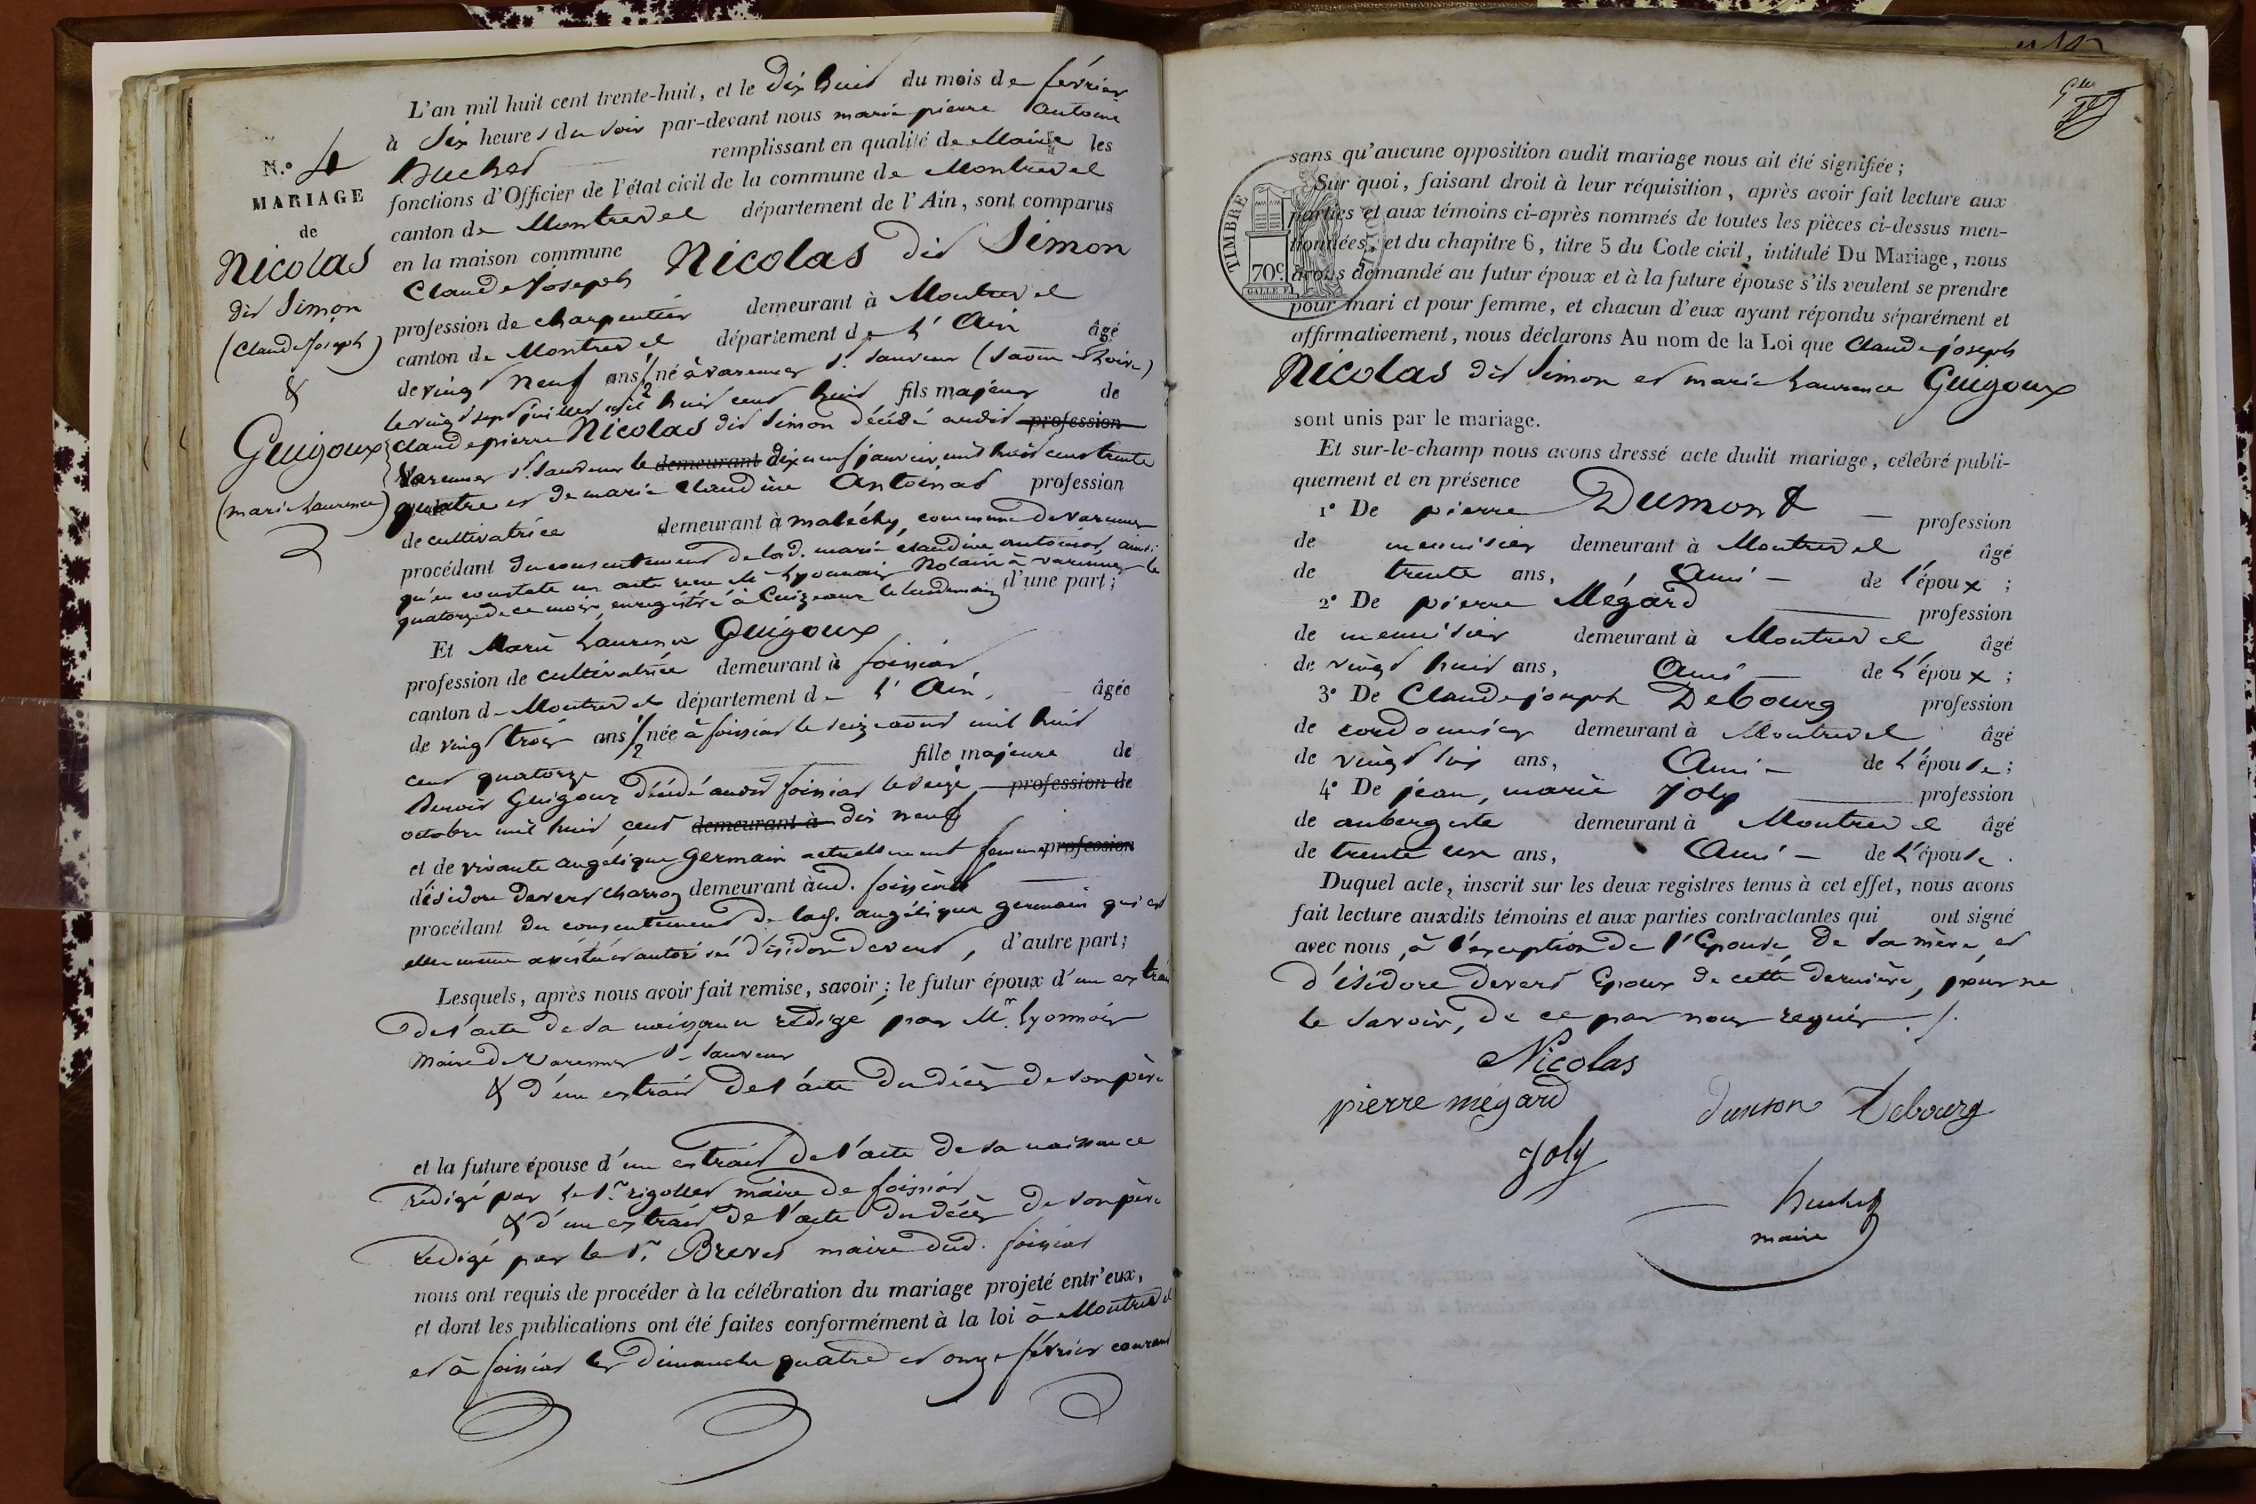 N.º 4
MARIAGE
de
Nicolas
dit Simon
(Claude Joseph)
&
Guigoux
(marie Laurence)
L'an mil huit cent trente-huit, et le dix huit du mois de février
à six heures du soir par-devant nous marie pierre Antoine
Huchet remplissant en qualité de Maire les
fonctions d'Officier de l'état civil de la commune de Montrevel
canton de Montrevel département de l'Ain, sont comparus
en la maison commune Nicolas dit Simon
Claude Joseph
profession de charpentier demeurant à Montrevel
canton de Montrevel département de L'Ain âgé
de vingt neuf ans 1/2 né à varennes St. Sauveur (Saône & Loire)
le vingt sept juillet mil huit cent huit fils majeur de
Claude pierre Nicolas dit Simon décédé audit profession
Varennes St. Sauveur le demeurant dix neuf janvier mil huit cent trente
quatre et de marie Claudine Antoinat profession
de cultivatrice demeurant à maléchy, commune de varennes
procédant du consentement de lad. marie claudine antoinat ainsi
qu'en constate un acte reçu Me Lyonnais Notaire à varennes le
quatorze de ce mois, enregistré à Cuiseaux le lendemain d'une part;
Et Marie Laurence Guigoux
profession de cultivatrice demeurant à foissiat
canton de Montrevel département de L'Ain, âgée
de vingt trois ans 1/2 née à foissiat le seize aout mil huit
cent quatorze fille majeure de
Benoit Guigoux décédé audit foissiat le treize profession de
octobre mil huit cent demeurant à dix neuf
et de vivante angélique germain actuellement femme profession
d'isidore devert charron demeurant aud. foissiat
procédant du consentement de lad. angélique germain qui est
elle même assistée et autorisée d'isidore devert, d'autre part;
Lesquels, après nous avoir fait remise, savoir: le futur époux d'un extrait
de l'acte de sa naissance rédigé par Mr. Lyonnais
Maire de Varennes St. Sauveur
& d'un extrait de l'acte du décès de son père
et la future épouse d'un extrait de l'acte de sa naissance
rédigé par le Sr. rigollet maire de foissiat
& d'un extrait de l'acte du décès de son père
rédigé par le Sr. Brevet maire dud. foissiat
nous ont requis de procéder à la célébration du mariage projeté entr'eux,
et dont les publications ont été faites conformément à la loi à Montrevel
et à foissiat les dimanche quatre et onze février courant
sans qu'aucune opposition audit mariage nous ait été signifiée;
Sur quoi, faisant droit à leur réquisition, après avoir fait lecture aux
parties et aux témoins ci-après nommés de toutes les pièces ci-dessus men-
tionnées, et du chapitre 6, titre 5 du Code civil, intitulé Du Mariage, nous
avons demandé au futur époux et à la future épouse s'ils veulent se prendre
pour mari et pour femme, et chacun d'eux ayant répondu séparément et
affirmativement, nous déclarons Au nom de la Loi que Claude joseph
Nicolas dit Simon et marie Laurence Guigoux
sont unis par le mariage.
Et sur-le-champ nous avons dressé acte dudit mariage, célébré publi-
quement et en présence
1º De pierre Dumont profession
de menuisier demeurant à Montrevel âgé
de trente ans, Ami de l'époux;
2º De pierre Mégard profession
de menuisier demeurant à Montrevel âgé
de vingt huit ans, Ami de L'époux;
3º De Claude joseph Debourg profession
de cordonnier demeurant à Montrevel âgé
de vingt six ans, Ami de L'épouse;
4º De jean, marie Joly profession
de aubergiste demeurant à Montrevel âgé
de trente un ans, Ami de L'épouse.
Duquel acte, inscrit sur les deux registres tenus à cet effet, nous avons
fait lecture auxdits témoins et aux parties contractantes qui ont signé
avec nous, à l'exception de l'Epouse, de sa mère et
d'isidore devert Epoux de cette dernière, pour ne
le savoir, de ce par nous requis ./.
Nicolas
pierre mégard dumon Debourg
Joly
Huchet
maire
TIMBRE ROYAL
70c